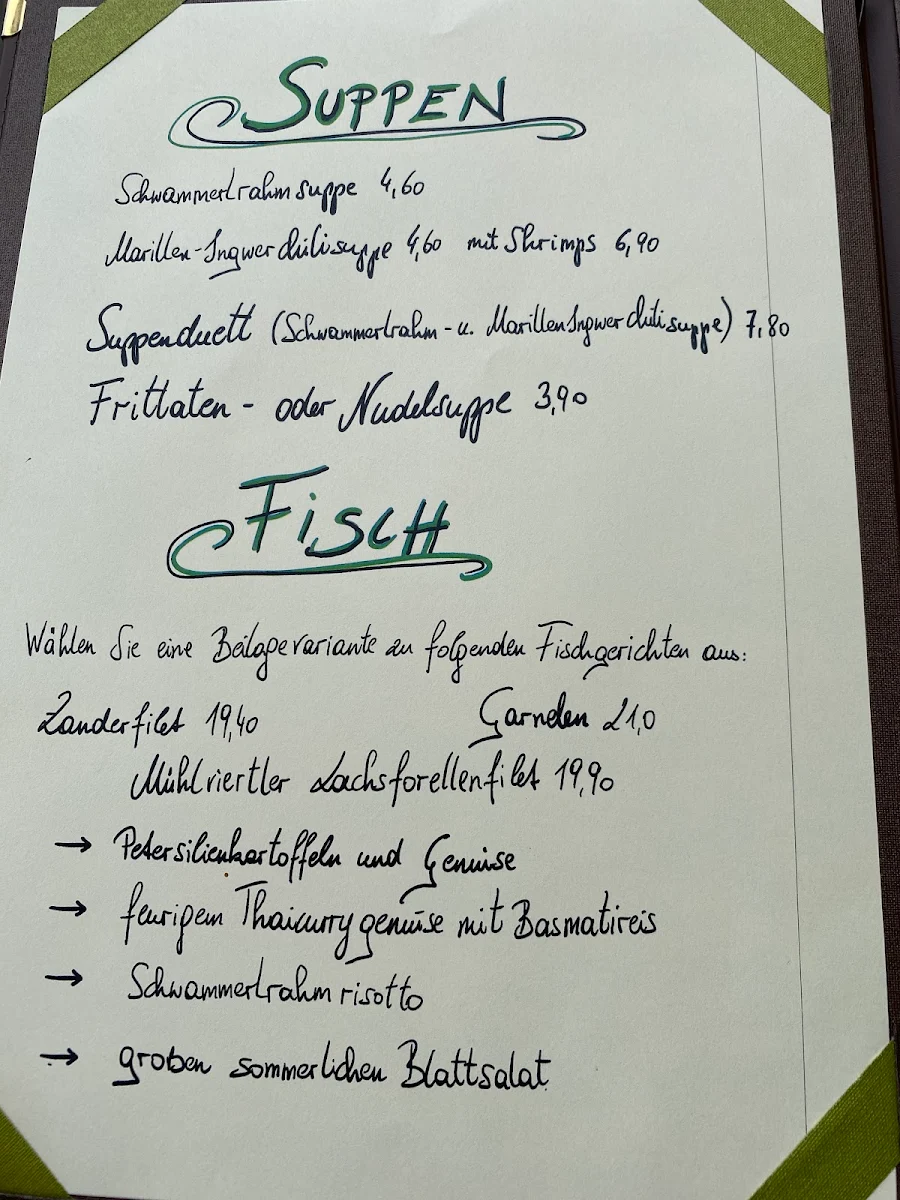 SUPPEN
Schwammerlrahmsuppe 4,60
Marillen-Ingwer chilisuppe 4,60 mit Shrimps 6,90
Suppenduett (Schwammerlrahm- u. MarillenIngwer chilisuppe) 7,80
Frittaten - oder Nudelsuppe 3,90
FiSCH
Wählen Sie eine Beilagevariante zu folgenden Fischgerichten aus:
Zanderfilet 19,40 Garnelen 21,0
Mühlviertler Lachsforellenfilet 19,90
→ Petersilienkartoffeln und Gemüse
→ feurigem Thaicurrygemüse mit Basmatireis
→ Schwammerlrahmrisotto
→ großen sommerlichen Blattsalat